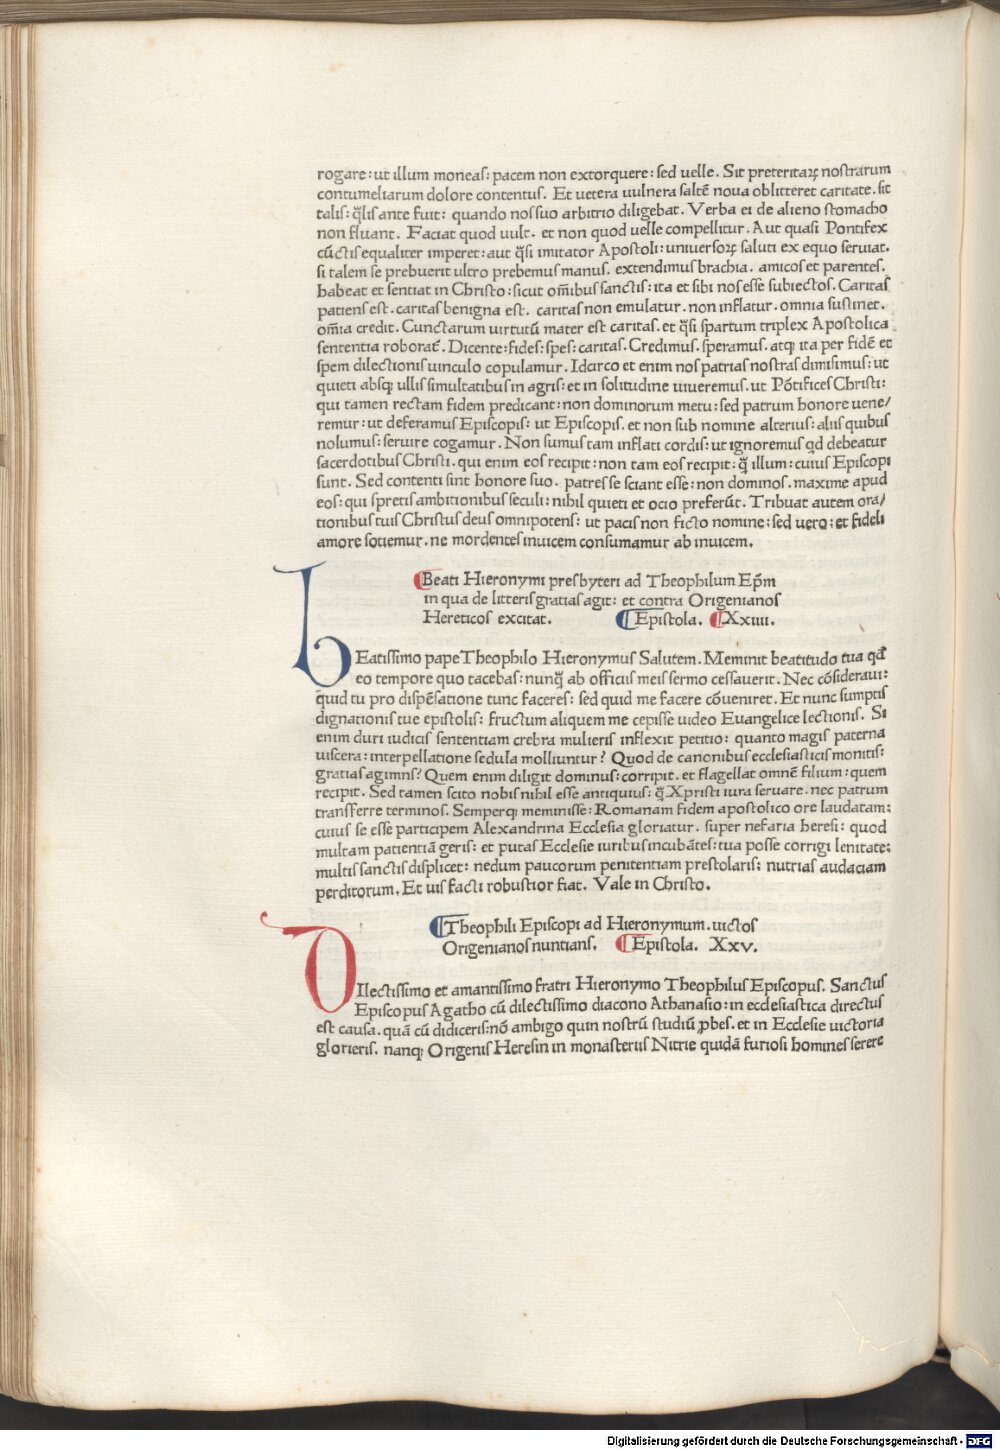 rogare: ut illum moneas: pacem non extorquere: sed uelle. Sit preteritaꝝ nostrarum
contumeliarum dolore contentus. Et uetera uulnera saltē noua oblitteret caritate. sit
talis: q̄lis ante fuit: quando nos suo arbitrio diligebat. Verba ei de alieno stomacho
non fluant. Faciat quod uult. et non quod uelle compellitur. Aut quasi Pontifex
cūctis equaliter imperet: aut q̄si imitator Apostoli: uniuersoꝝ saluti ex equo seruiat.
si talem se prebuerit ultro prebemus manus. extendimus brachia. amicos et parentes.
habeat et sentiat in Christo: sicut om̄ibus sanctis: ita et sibi nos esse subiectos. Caritas
patiens est. caritas benigna est. caritas non emulatur. non inflatur. omnia sustinet.
om̄ia credit. Cunctarum uirtutū mater est caritas. et q̄si spartum triplex Apostolica
sententia roborat̄. Dicente: fides: spes: caritas. Credimus. speramus. atqꝫ ita per fidē et
spem dilectionis uinculo copulamur. Idcirco et enim nos patrias nostras dimisimus: ut
quieti absqꝫ ullis simultatibus in agris: et in solitudine uiueremus. ut Pōtifices Christi:
qui tamen rectam fidem predicant: non dominorum metu: sed patrum honore uene/
remur: ut deferamus Episcopis: ut Episcopis. et non sub nomine alterius: aliis quibus
nolumus: seruire cogamur. Non sumus tam inflati cordis: ut ignoremus qd debeatur
sacerdotibus Christi. qui enim eos recipit: non tam eos recipit: q̄ illum: cuius Episcopi
sunt. Sed contenti sint honore suo. patres se sciant esse: non dominos. maxime apud
eos: qui spretis ambitionibus seculi: nihil quieti et ocio preferūt. Tribuat autem ora/
tionibus tuis Christus deus omnipotens: ut pacis non ficto nomine: sed uero: et fideli
amore sotiemur. ne mordentes inuicem consumamur ab inuicem.
¶Beati Hieronymi presbyteri ad Theophilum Ep̄m
in qua de litteris gratias agit: et contra Origenianos
Hereticos excitat. ¶Epistola. ¶Xxiiii.
bEatissimo pape Theophilo Hieronymus Salutem. Meminit beatitudo tua qđ
eo tempore quo tacebas: nunq̄ ab officiis meis sermo cessauerit. Nec cōsideraui:
quid tu pro dispēsatione tunc faceres: sed quid me facere cōueniret. Et nunc sumptis
dignationis tue epistolis: fructum aliquem me cepisse uideo Euangelice lectionis. Si
enim duri iudicis sententiam crebra mulieris inflexit petitio: quanto magis paterna
uiscera: interpellatione sedula molliuntur? Quod de canonibus ecclesiasticis monitis:
gratias agimns? Quem enim diligit dominus: corripit. et flagellat omnē filium: quem
recipit. Sed tamen scito nobis nihil esse antiquius: q̄ Xpristi iura seruare. nec patrum
transferre terminos. Semperqꝫ meminisse: Romanam fidem apostolico ore laudatam:
cuius se esse participem Alexandrina Ecclesia gloriatur. super nefaria heresi: quod
multam patientiā geris: et putas Ecclesie iuribus incubātes: tua posse corrigi lenitate:
multis sanctis displicet: nedum paucorum penitentiam prestolaris: nutrias audaciam
perditorum. Et uis facti robustior fiat. Vale in Christo.
¶Theophili Episcopi ad Hieronymum. uictos
Origenianos nuntians. ¶Epistola. Xxv.
DIlectissimo et amantissimo fratri Hieronymo Theophilus Episcopus. Sanctus
Episcopus Agatho cū dilectissimo diacono Athanasio: in ecclesiastica directus
est causa. quā cū didiceris: nō ambigo quin nostrū studiū ꝓbes. et in Ecclesie uictoria
glorieris. nanqꝫ Origenis Heresin in monasteriis Nitrie quidā furiosi homines serere
Digitalisierung gefördert durch die Deutsche Forschungsgemeinschaft - DFG